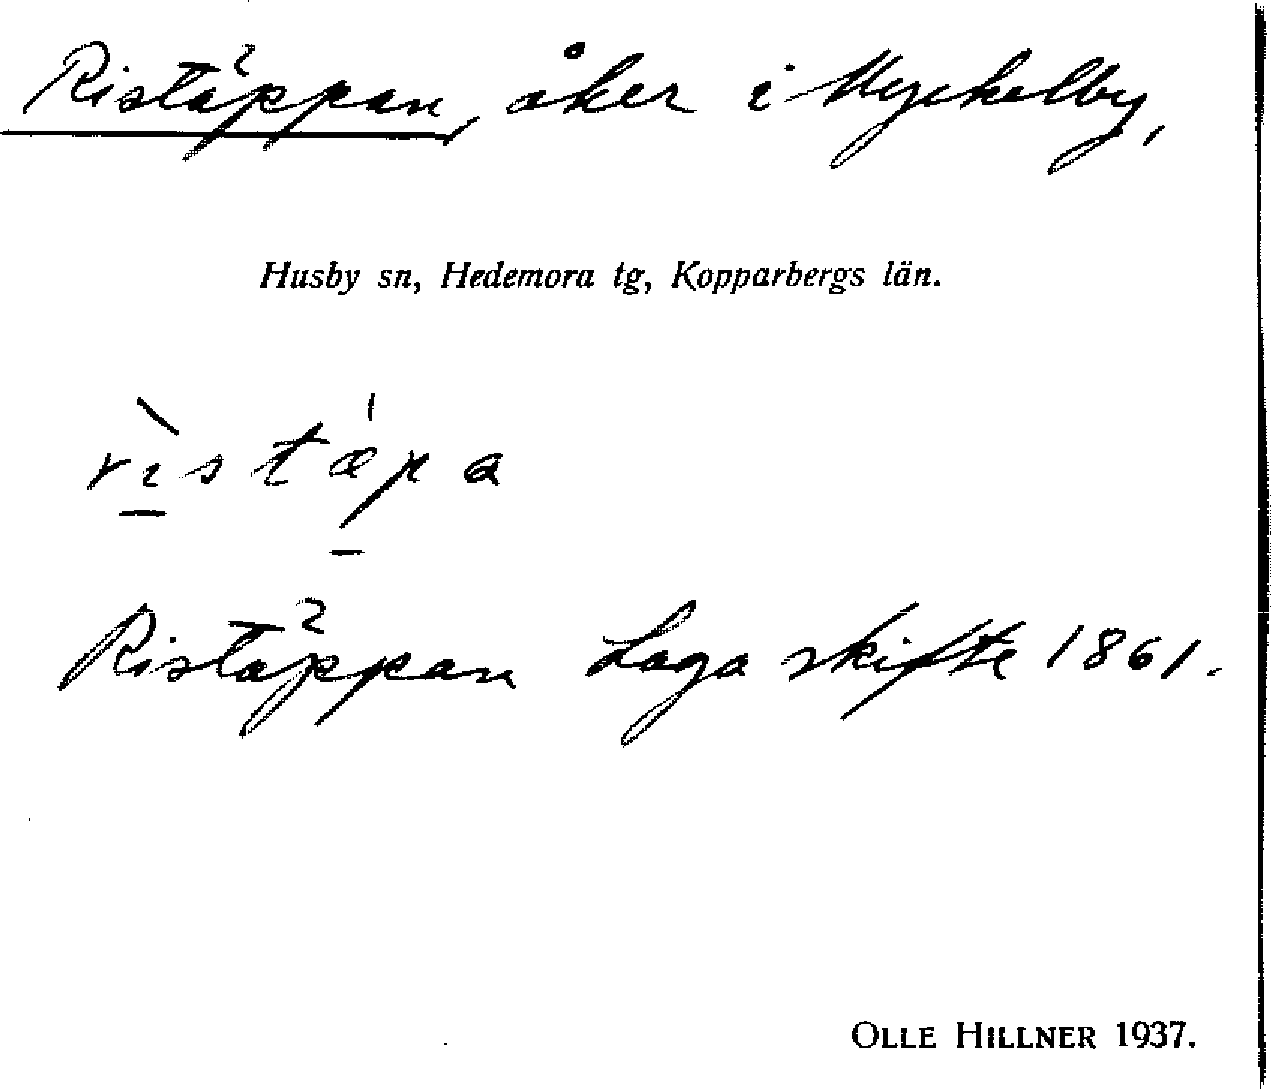 Ristäppan, åker i Myckelby,
Husby sn, Hedemora tg, Kopparbergs län.
rìstǽpa
Ristäppan Laga skifte 1861.
OLLE HILLNER 1937.